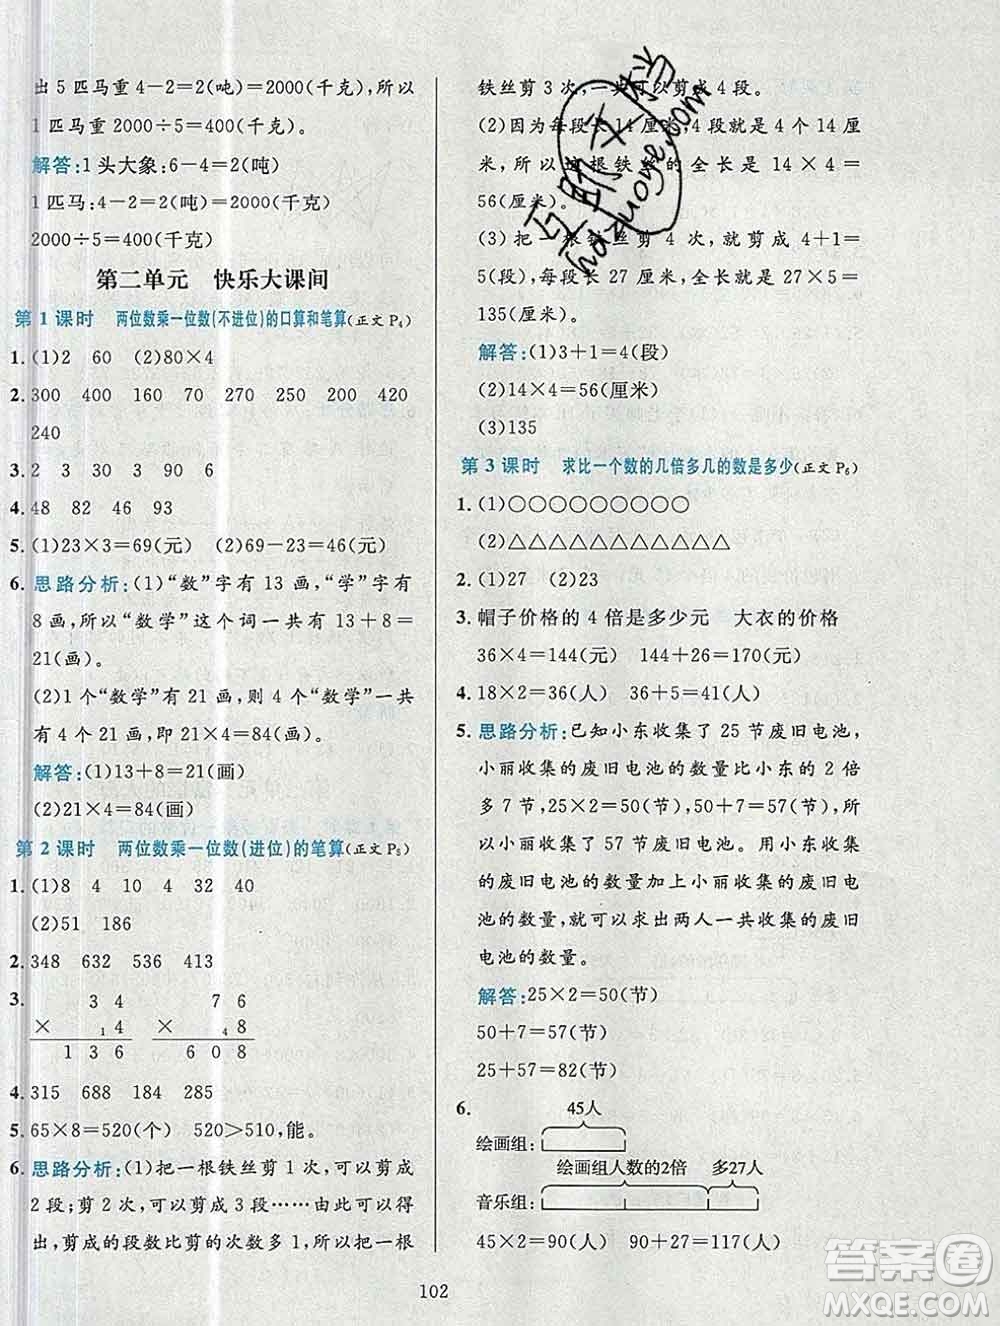 出 5 匹马重 4－2＝2(吨)＝2000(千克)，所以
1 匹马重 2000÷5＝400(千克)。
解答：1 头大象：6－4＝2(吨)
1 匹马：4－2＝2(吨)＝2000(千克)
2000÷5＝400(千克)
第二单元　快乐大课间
第 1 课时　两位数乘一位数(不进位)的口算和笔算(正文 P₄)
1. (1)2　60　(2)80×4
2. 300　400　160　70　270　250　200　420
240
3. 2　4　3
4. 48　82　46　93
5. (1)23×3＝69(元)　(2)69－23＝46(元)
6. 思路分析：(1)“数”字有 13 画，“学”字有
8 画，所以“数学”这个词一共有 13＋8＝
21(画)。
(2)1 个“数学”有 21 画，则 4 个“数学”一共
有 4 个 21 画，即 21×4＝84(画)。
解答：(1)13＋8＝21(画)
(2)21×4＝84(画)
第 2 课时　两位数乘一位数(进位)的笔算(正文 P₅)
1. (1)8　4　10　4　32　40
(2)51　186
2. 348　632　536　413
3. 3 4　7 6
× ₁4　× ₄8
1 3 6　6 0 8
4. 315　688　184　285
5. 65×8＝520(个)　520＞510，能。
6. 思路分析：(1)把一根铁丝剪 1 次，可以剪成
2 段；剪 2 次，可以剪成 3 段……由此可以得
出，剪成的段数比剪的次数多 1，所以把一根
铁丝剪 3 次，一共可以剪成 4 段。
(2)因为每段长 14 厘米，4 段就是 4 个 14 厘
米，所以这根铁丝的全长是 14×4＝
56(厘米)。
(3)把一根铁丝剪 4 次，会剪成 4＋1＝
5(段)，每段长 27 厘米，全长是 27×5＝
135(厘米)。
解答：(1)3＋1＝4(段)
(2)14×4＝56(厘米)
(3)135
第 3 课时　求比一个数的几倍多几的数是多少(正文 P₆)
1. (1)○○○○○○○○○
(2)△△△△△△△△△△△
2. (1)27　(2)23
3. 帽子价格的 4 倍是多少元　大衣的价格
36×4＝144(元)　144＋26＝170(元)
4. 18×2＝36(人)　36＋5＝41(人)
5. 思路分析：已知小东收集了 25 节废旧电池，
小丽收集的废旧电池的数量比小东的 2 倍
多 7 节，25×2＝50(节)，50＋7＝57(节)，所
以小丽收集了 57 节废旧电池。用小东收集
的废旧电池的数量加上小丽收集的废旧电
池的数量，就可以求出两人一共收集的废旧
电池的数量。
解答：25×2＝50(节)
50＋7＝57(节)
25＋57＝82(节)
6. 45人
绘画组：
绘画组人数的2倍　多27人
音乐组：
45×2＝90(人)　90＋27＝117(人)
102
互助文体当
hdzuoye.com
答案圈
MXQE.COM